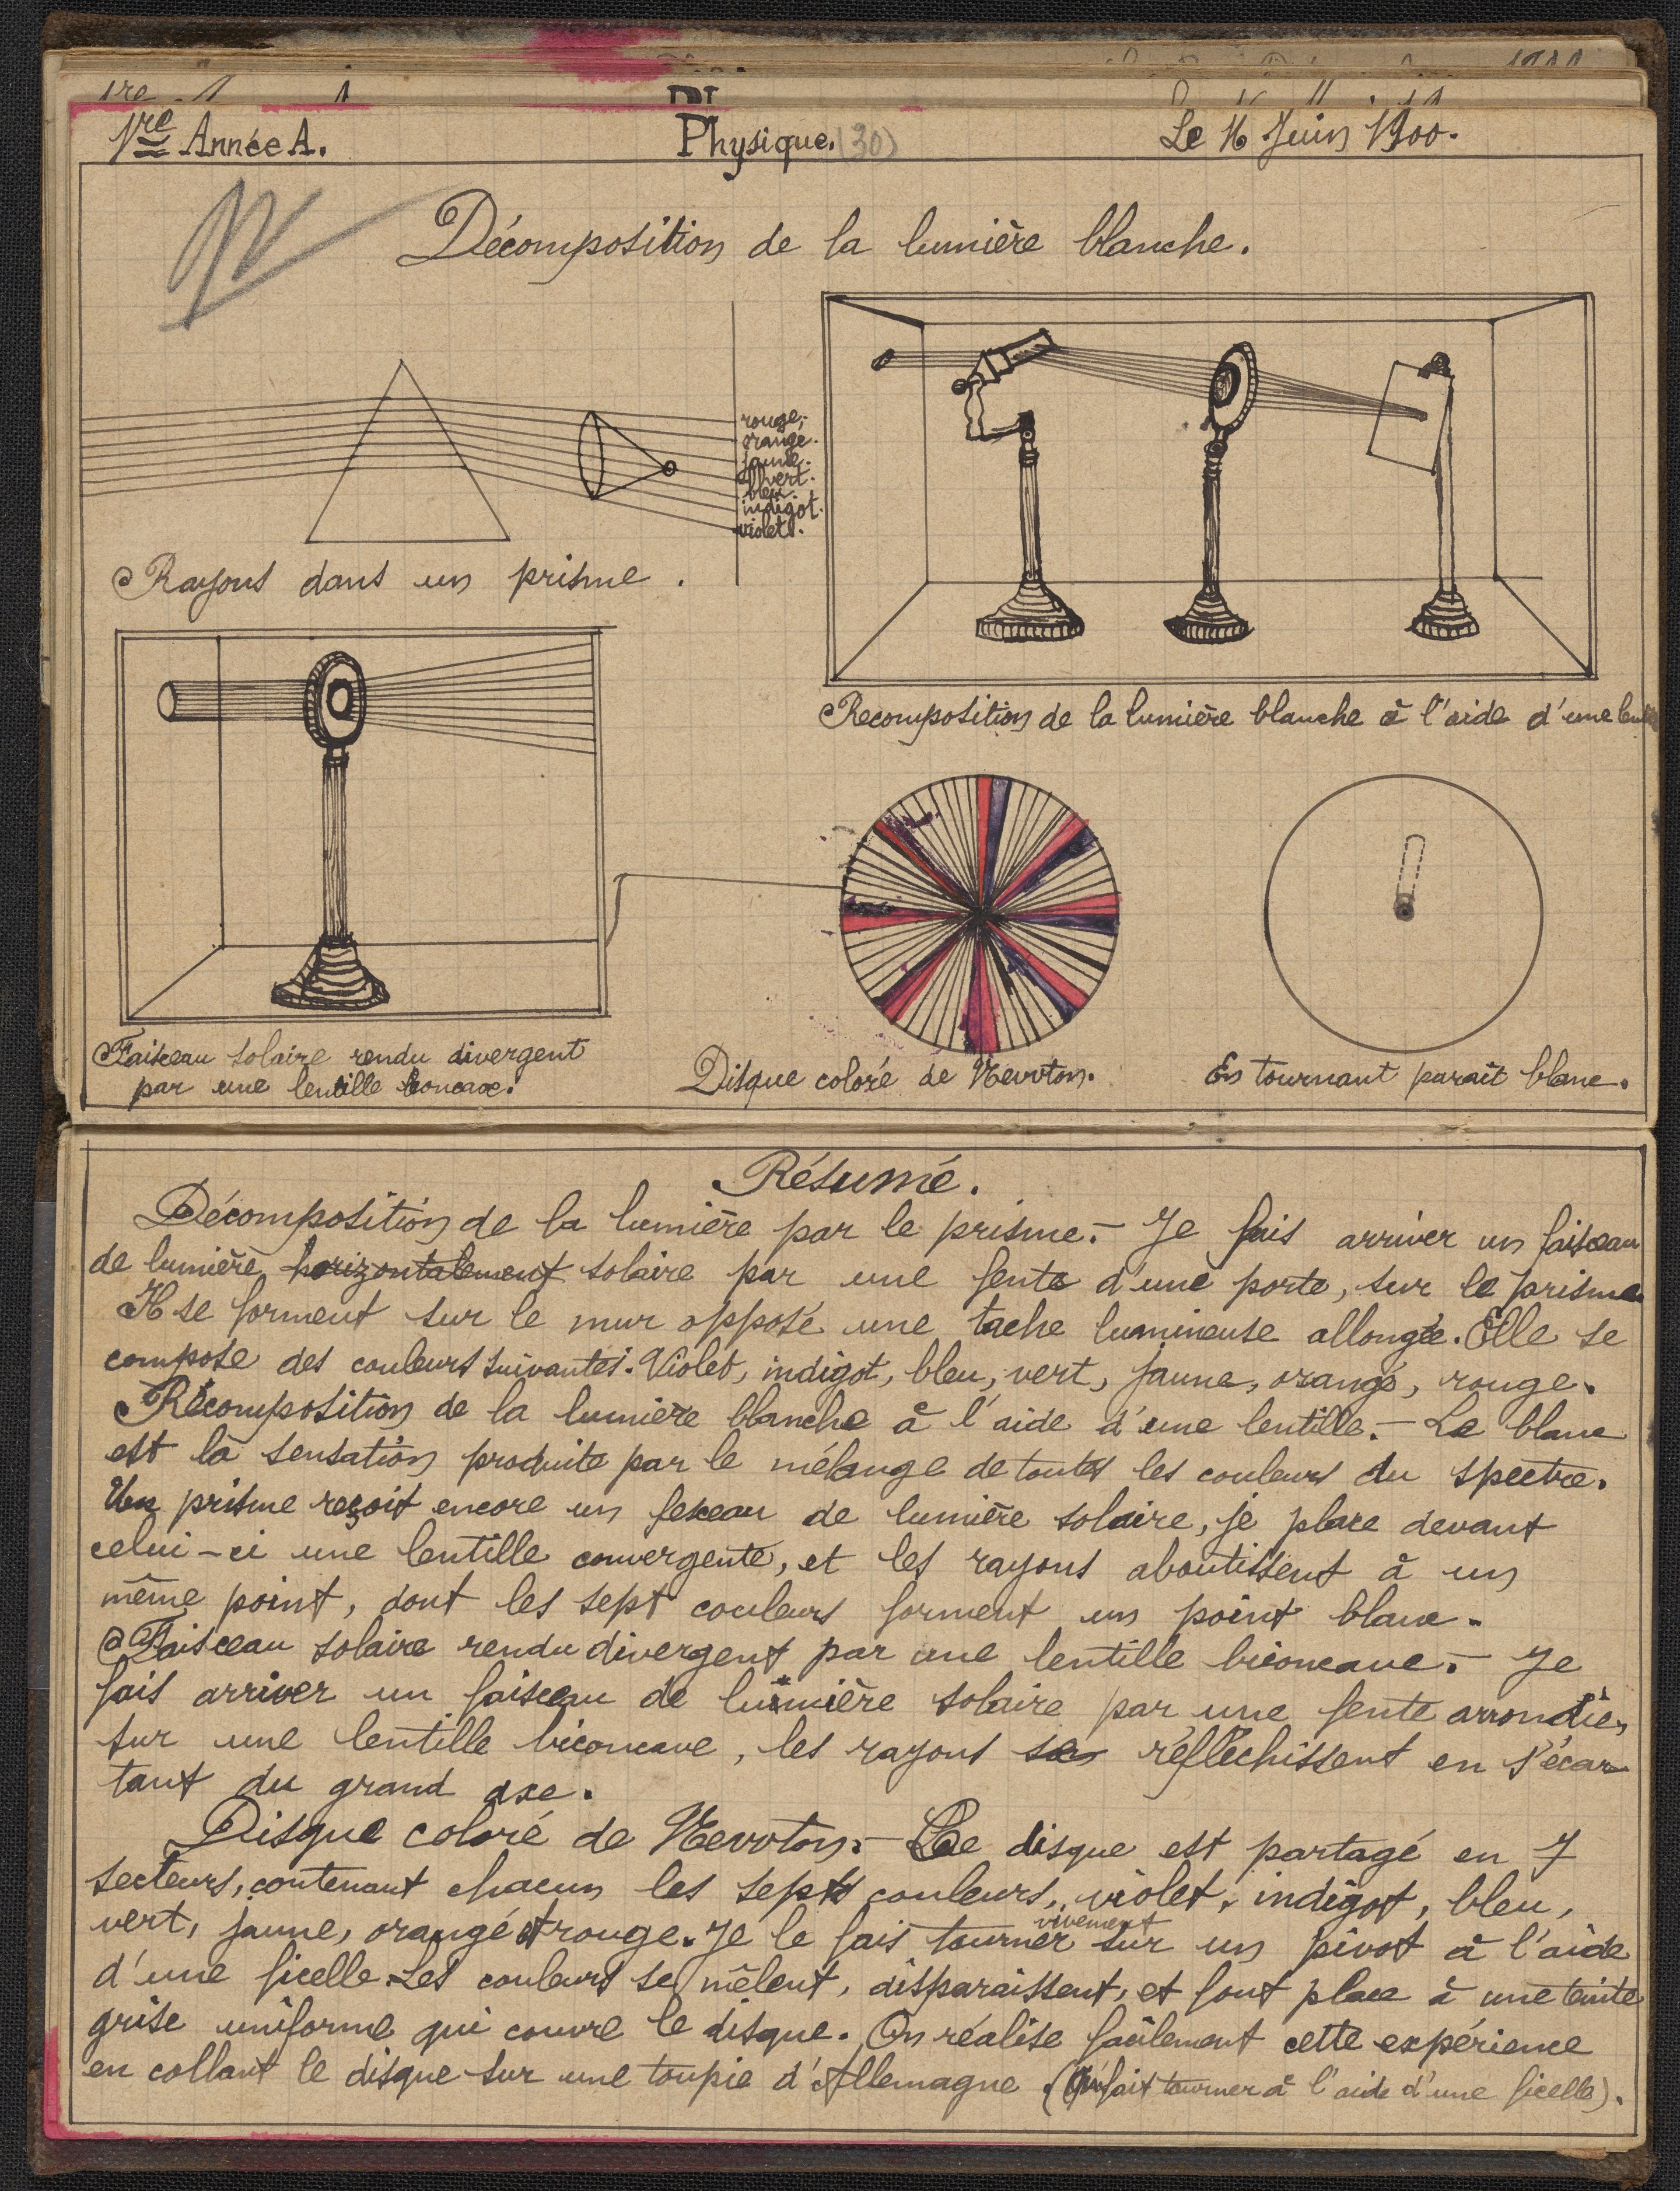 1re Année A.
Physique. (30)
Le 16 Juin 1900.
Décomposition de la lumière blanche.
rouge.
orangé.
jaune.
vert.
bleu.
indigot.
violet.
Rayons dans un prisme.
Recomposition de la lumière blanche à l'aide d'une
Faisceau solaire rendu divergent
par une lentille
Disque coloré de Nevvton.
En tournant parait blanc.
Résumé.
Décomposition de la lumière par le prisme.- Je fais arriver un faisceau
de lumière horizontalement solaire par une fente d'une porte, sur le prisme
Il se forment sur le mur opposé une tache lumineuse allongée. Elle se
compose des couleurs suivantes. Violet, indigot, bleu, vert, jaune, orangé, rouge.
Récomposition de la lumière blanche à l'aide d'une lentille.- Le blanc
est la sensation produite par le mélange de toutes les couleurs du spectre.
Un prisme reçoit encore un fesceau de lumière solaire, je place devant
celui-ci une lentille convergente, et les rayons aboutissent à un
même point, dont les sept couleurs forment un point blanc.
Faisceau solaire rendu divergent par une lentille biconcave.- Je
fais arriver un faisceau de lumière solaire par une fente arrondie,
sur une lentille biconcave, les rayons se réflechissent en s'écar-
tant du grand axe.
Disque coloré de Nevvton.- Le disque est partagé en 7
secteurs, contenant chacun les sept couleurs, violet, indigot, bleu,
vert, jaune, orangé et rouge. Je le fais tourner vivement sur un pivot à l'aide
d'une ficelle. Les couleurs se mêlent, disparaissent, et font place à une teinte
grise uniforme qui couvre le disque. On réalise facilement cette expérience
en collant le disque sur une toupie d'Allemagne. (Qu' fait tourner à l'aide d'une ficelle).